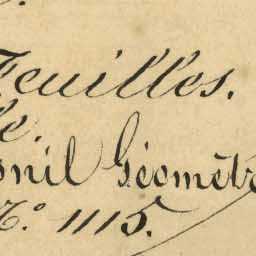 Feuilles.
le.
onil Géomètre
N.º 1115.